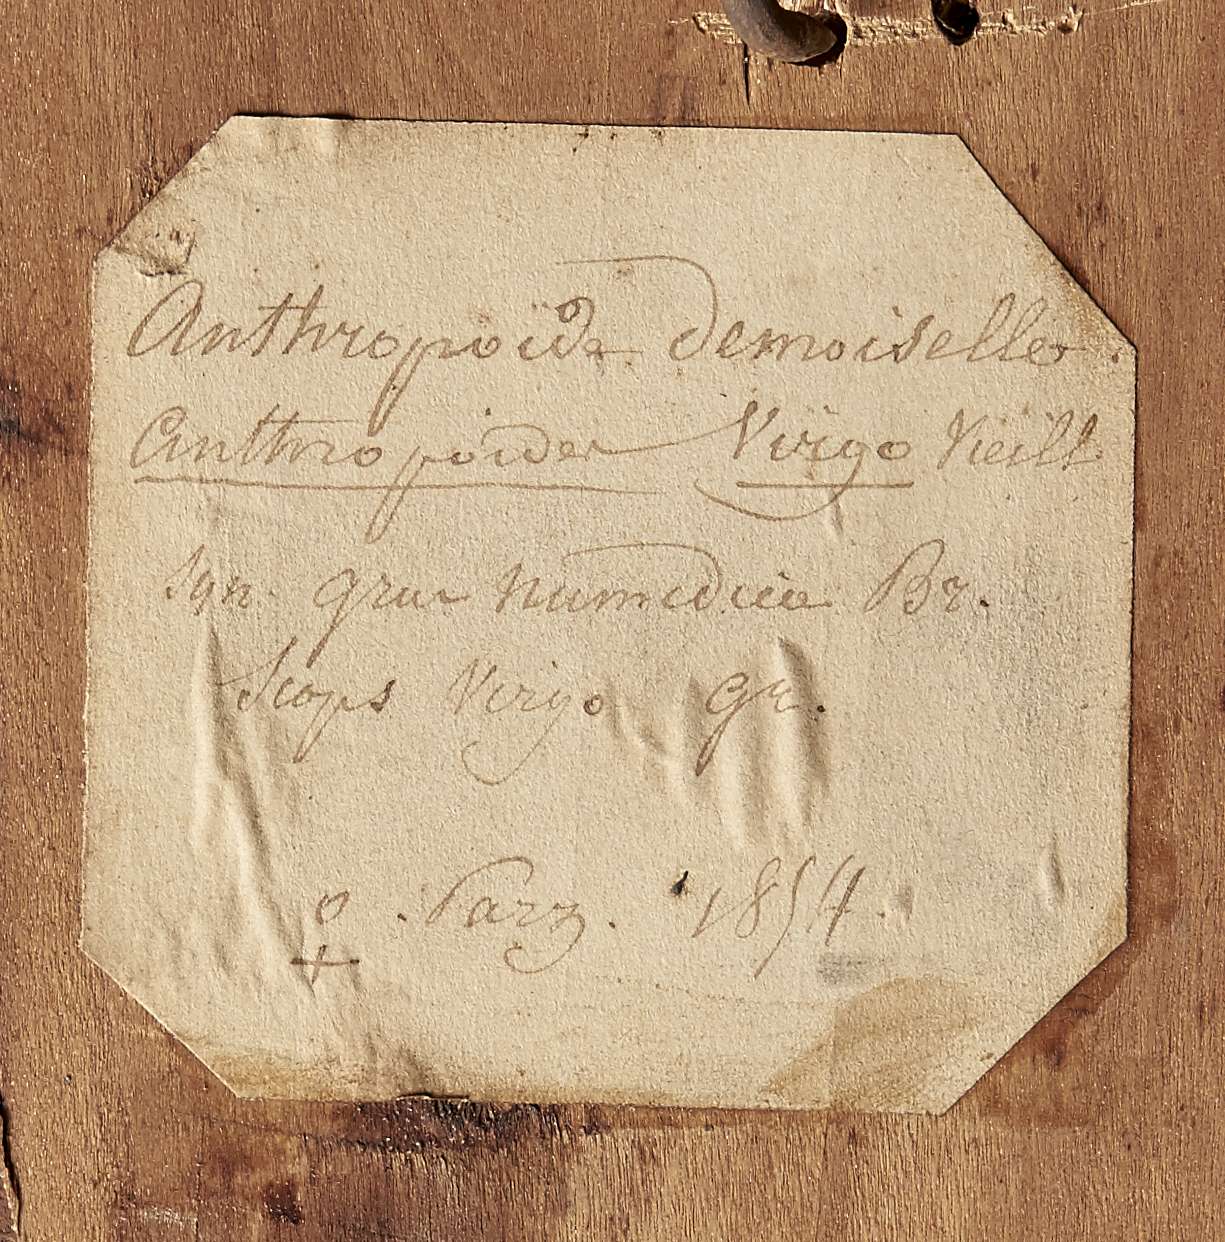 Anthropoïde demoiselle.
Anthropoides Virgo Vieill.
Syn. grus numidica Br.
Scops Virgo gr.
♀ . 1854.